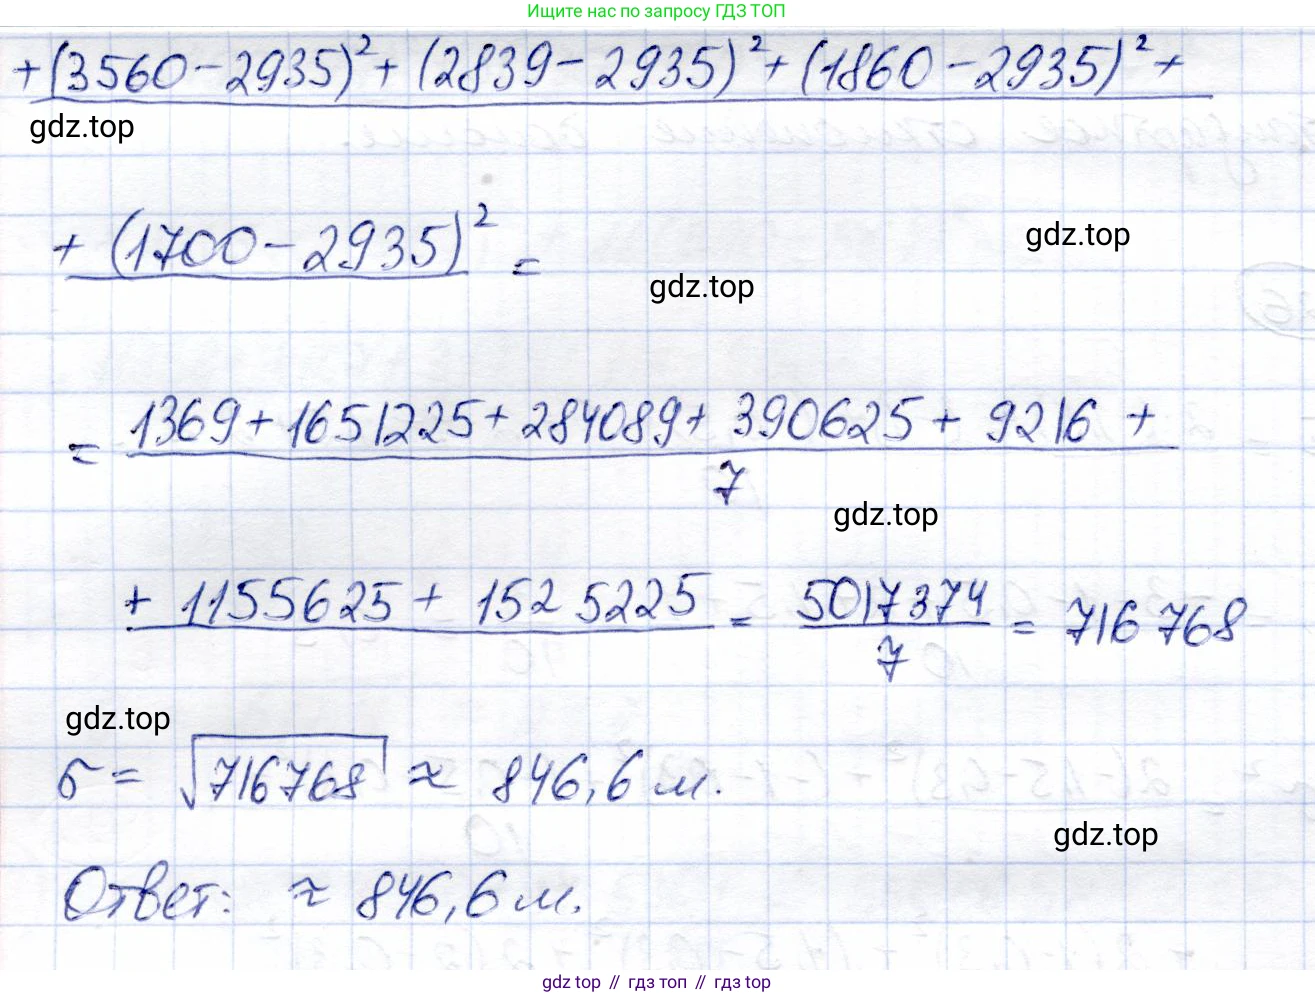 Ищите нас по запросу ГДЗ ТОП
+(3560-2935)²+(2839-2935)²+(1860-2935)²+
gdz.top
+(1700-2935)²=
gdz.top
gdz.top
= 1369+1651225+284089+390625+9216+
7
gdz.top
+1155625+1525225 = 5017374/7 = 716768
gdz.top
σ= √716768 ≈ 846,6 м.
gdz.top
Ответ: ≈ 846,6 м.
gdz top // гдз топ // гдз top